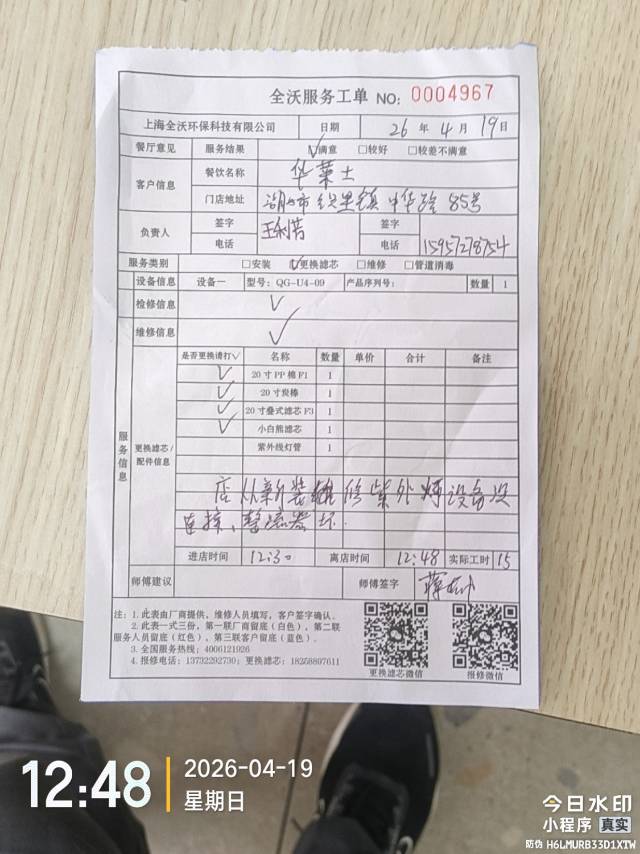 全沃服务工单 NO: 0004967
上海全沃环保科技有限公司 日期 26 年 4 月 19 日
餐厅意见 服务结果 ☑满意 □较好 □较差不满意
客户信息 餐饮名称 华莱士
门店地址 湖州市织里镇中华路85号
负责人 签字 王利芳 签字
电话 电话 15957278754
服务类别 □安装 ☑更换滤芯 □维修 □管道消毒
设备信息 设备一 型号: QG-U4-09 产品序列号: 数量 1
检修信息 ✓
维修信息 ✓
服务信息 更换滤芯/配件信息
是否更换请打✓ 名称 数量 单价 合计 备注
✓ 20寸PP棉F1 1
✓ 20寸炭棒 1
✓ 20寸叠式滤芯F3 1
✓ 小白熊滤芯 1
紫外线灯管 1
店从新装修紫外灯设备没
连接、整流器坏.
进店时间 12:30 离店时间 12:48 实际工时 15
师傅建议 师傅签字
注: 1.此表由厂商提供, 维修人员填写, 客户签字确认。
2.此表一式三份, 第一联厂商留底(白色), 第二联
服务人员留底(红色), 第三联客户留底(蓝色)。
3.全国服务热线: 4006121926
4.报修电话: 13732292730; 更换滤芯: 18268897611
更换滤芯微信 报修微信
12:48
2026-04-19
星期日
今日水印
小程序 真实
防伪 H6LMURB33D1XTW